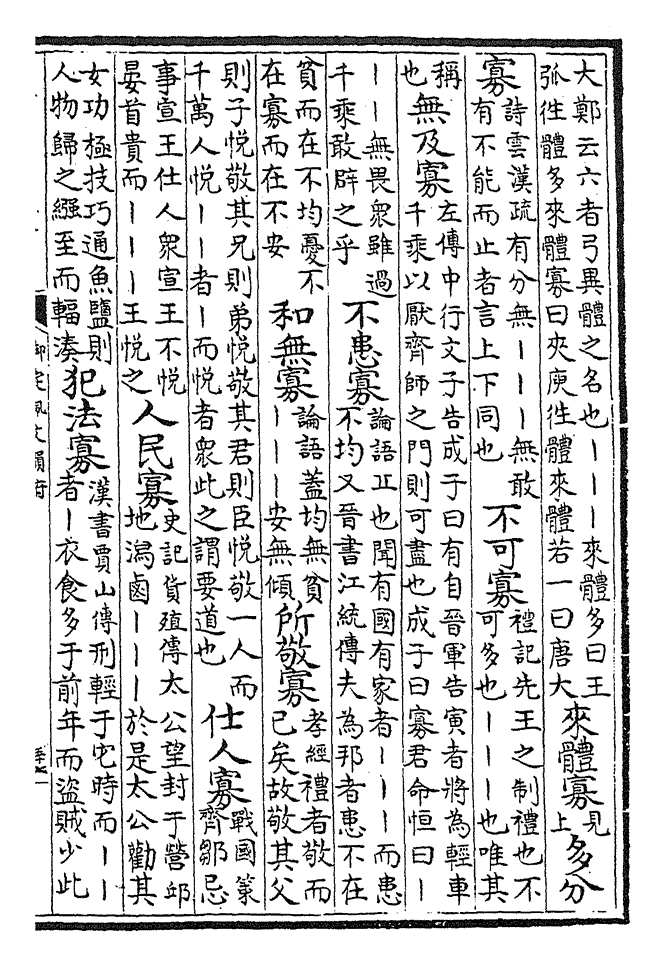 大鄭云六者弓異體之名也丨丨丨來體多曰王
弧徃體多來體寡曰夾庾徃體來體若一曰唐大
來體寡
見上
多分
寡
詩雲漢疏有分無丨丨丨無敢
有不能而止者言上下同也
不可寡
禮記先王之制禮也不
可多也丨丨丨也唯其
稱
也
無及寡
左傳中行文子告成子曰有自晉軍告寅者將為輕車
千乘以厭齊師之門則可盡也成子曰寡君命恒曰丨
丨丨無畏衆雖過
千乘敢辟之乎
不患寡
論語丘也聞有國有家者丨丨丨而患
不均又晉書江統傳夫為邦者患不在
貧而在不均憂不
在寡而在不安
和無寡
論語蓋均無貧
丨丨丨安無傾
所敬寡
孝經禮者敬而
已矣故敬其父
則子悅敬其兄則弟悅敬其君則臣悅敬一人而
千萬人悅丨丨者丨而悅者衆此之謂要道也
仕人寡
戰國策
齊鄒忌
事宣王仕人衆宣王不悅
晏首貴而丨丨丨王悅之
人民寡
史記貨殖傳太公望封于營邱
地潟鹵丨丨丨於是太公勸其
女功極技巧通魚鹽則
人物歸之繦至而輻湊
犯法寡
漢書賈山傳刑輕于它時而丨丨
者丨衣食多于前年而盜賊少此